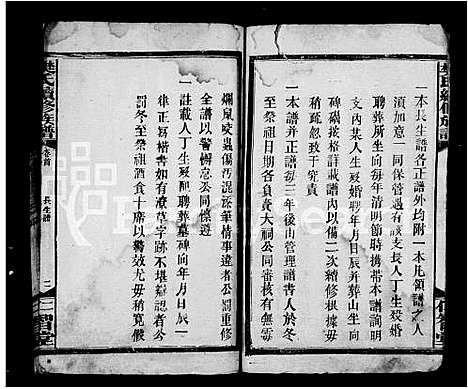 樊氏續修族譜
一本長生譜各正譜外均附一本凡領譜之人
須加意一同保管遇有該支長人丁生殁婚
聘葬情事務於每年清明節時携帶本譜詢明
支內某人生殁婚聘年月日辰並葬山某向有
碑砥按格詳載譜內以備二次續修根據毋得
稍為疏忽
一本譜并正譜每三年後由管理譜書人於冬
至祭祖日各負責大祠公同審查如有
爛鼠咬虫傷污混添筆情事違者公罰重修
全譜以警懈怠公同懷遵
一註載人丁生殁配聘葬墓碑向年月日辰一
律正寫楷書如有潦草字跡不堪辯認者公
罰冬至祭祖酒食十席以警效尤毋稍寬假
樊氏續修族譜
卷首
長生譜
二